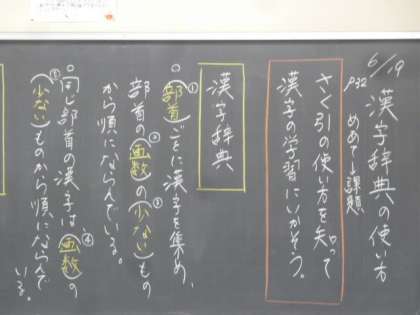 6/19
漢字辞典の使い方
P32 めあて→課題
さく引の使い方を知って
漢字の学習にいかそう。
漢字辞典
○①(部首)ごとに漢字を集め、
部首の②(画数)の③(少ない)もの
から順にならんでいる。
○同じ部首の漢字は④(画数)の
⑤(少ない)ものから順にならんで
いる。